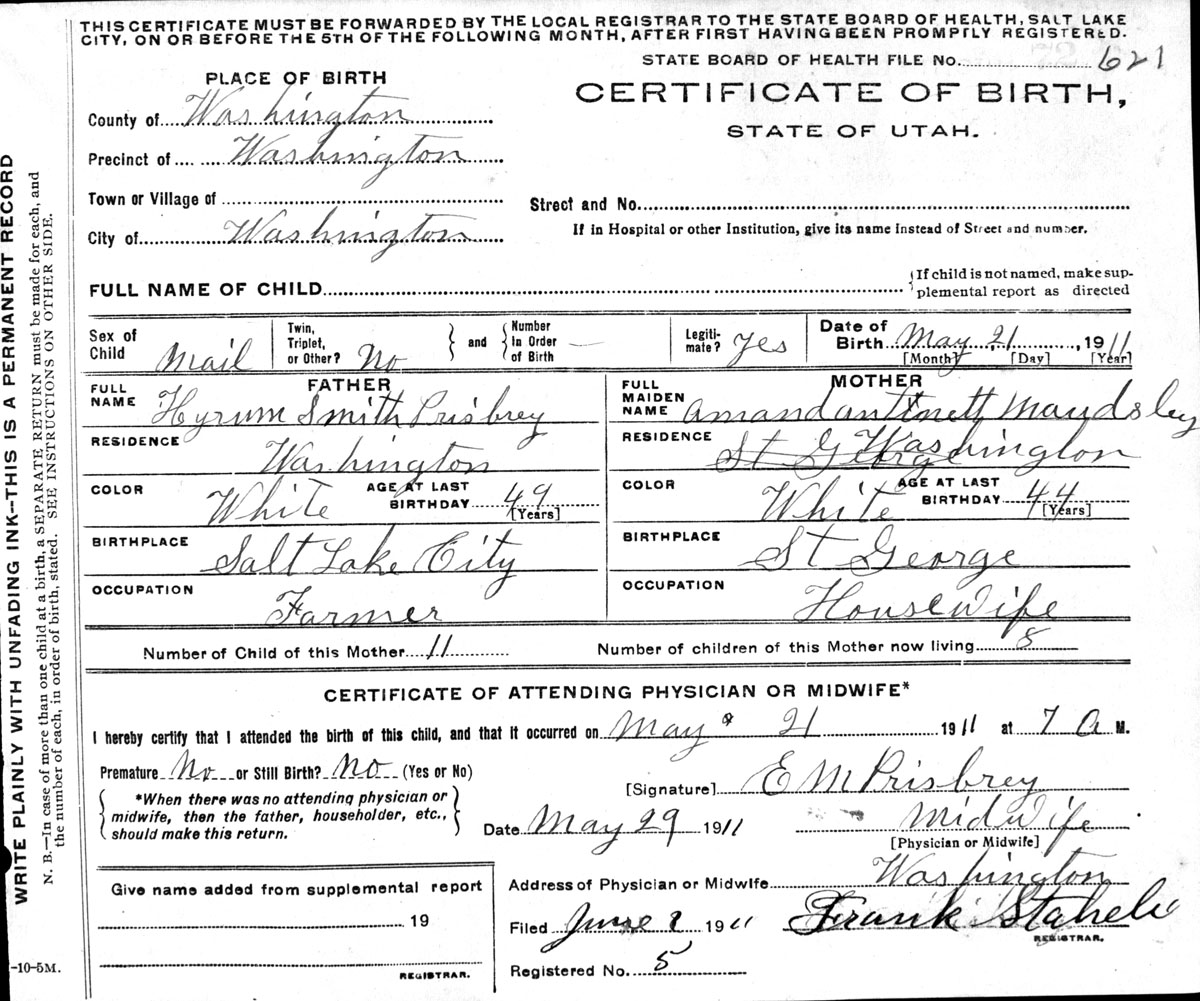 THIS CERTIFICATE MUST BE FORWARDED BY THE LOCAL REGISTRAR TO THE STATE BOARD OF HEALTH, SALT LAKE
CITY, ON OR BEFORE THE 5TH OF THE FOLLOWING MONTH, AFTER FIRST HAVING BEEN PROMPTLY REGISTERED.
STATE BOARD OF HEALTH FILE No. 621
PLACE OF BIRTH
CERTIFICATE OF BIRTH,
STATE OF UTAH.
County of Washington
Precinct of Washington
Town or Village of
Street and No.
City of Washington
If in Hospital or other Institution, give its name instead of Street and number.
FULL NAME OF CHILD
If child is not named, make sup-
plemental report as directed
Sex of Child Mail
Twin, Triplet, or Other? No
and
Number In Order of Birth —
Legiti-mate? Yes
Date of Birth May 21, 1911
[Month] [Day] [Year]
FATHER
FULL NAME Hyrum Smith Prisbrey
MOTHER
FULL MAIDEN NAME Amandantinett Maudsley
RESIDENCE Washington
RESIDENCE St George Washington
COLOR White AGE AT LAST BIRTHDAY 49 [Years]
COLOR White AGE AT LAST BIRTHDAY 44 [Years]
BIRTHPLACE Salt Lake City
BIRTHPLACE St George
OCCUPATION Farmer
OCCUPATION Housewife
Number of Child of this Mother 11 Number of children of this Mother now living 8
CERTIFICATE OF ATTENDING PHYSICIAN OR MIDWIFE*
I hereby certify that I attended the birth of this child, and that it occurred on May 21 1911 at 7 A M.
Premature No or Still Birth? No (Yes or No)
[Signature] E M Prisbrey
*When there was no attending physician or
midwife, then the father, householder, etc.,
should make this return.
Date May 29 1911 Midwife
[Physician or Midwife]
Give name added from supplemental report
19
REGISTRAR.
Address of Physician or Midwife Washington
Filed June 1911 Frank Staheli
REGISTRAR.
Registered No. 5
-10-5M.
WRITE PLAINLY WITH UNFADING INK--THIS IS A PERMANENT RECORD
N. B.—In case of more than one child at a birth, a SEPARATE RETURN must be made for each, and
the number of each, in order of birth, stated. SEE INSTRUCTIONS ON OTHER SIDE.